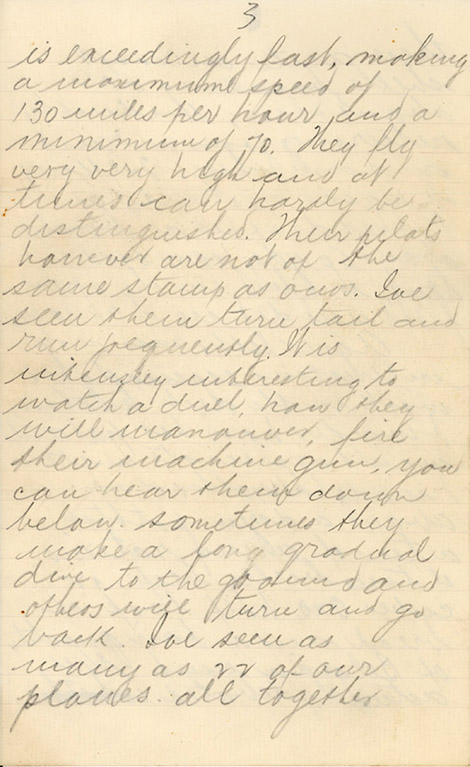 3
is exceedingly fast, making
a maximum speed of
130 miles per hour and a
minimum of 70. They fly
very very high and at
times can hardly be
distinguished. Their pilots
however are not of the
same stamp as ours. I've
seen them turn tail and
run frequently. It is
intensley interesting to
watch a duel, how they
will manouver, fire
their machine gun, you
can hear them down
below. Sometimes they
make a long gradual
dive to the ground and
others will turn and go
back. I've seen as
many as 22 of our
planes all together